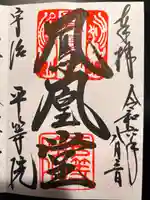 奉拝
令和二年八月二日
鳳凰堂
宇治
平等院